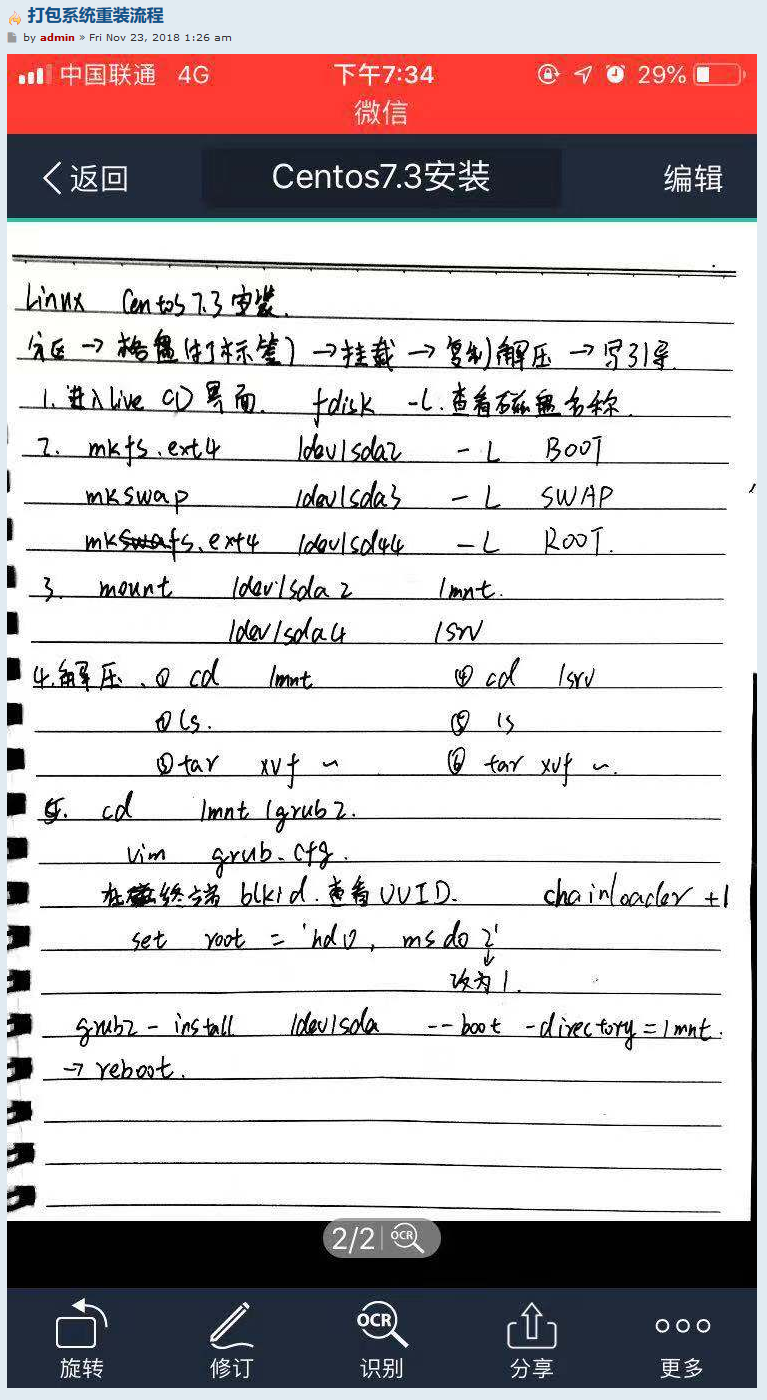 打包系统重装流程
by admin » Fri Nov 23, 2018 1:26 am
中国联通 4G 下午7:34 29%
微信
返回 Centos7.3安装 编辑
Linux Centos7.3安装.
分区 → 格盘(打标签) → 挂载 → 复制解压 → 写引导
1. 进入live CD 界面. fdisk -l. 查看磁盘名称.
2. mkfs.ext4 /dev/sda2 -L BOOT
mkswap /dev/sda3 -L SWAP
mkfs.ext4 /dev/sda4 -L ROOT.
3. mount /dev/sda2 /mnt.
/dev/sda4 /srv
4.解压. ① cd /mnt ④ cd /srv
② ls. ⑤ ls
③ tar xvf ~ ⑥ tar xvf ~.
5. cd /mnt/grub2.
vim grub.cfg.
在终端 blkid.查看UUID. chainloader +1
set root = 'hd0, msdo 2'
↓
改为1.
grub2-install /dev/sda --boot-directory=/mnt.
→ reboot.
2/2 OCR
OCR
旋转 修订 识别 分享 更多